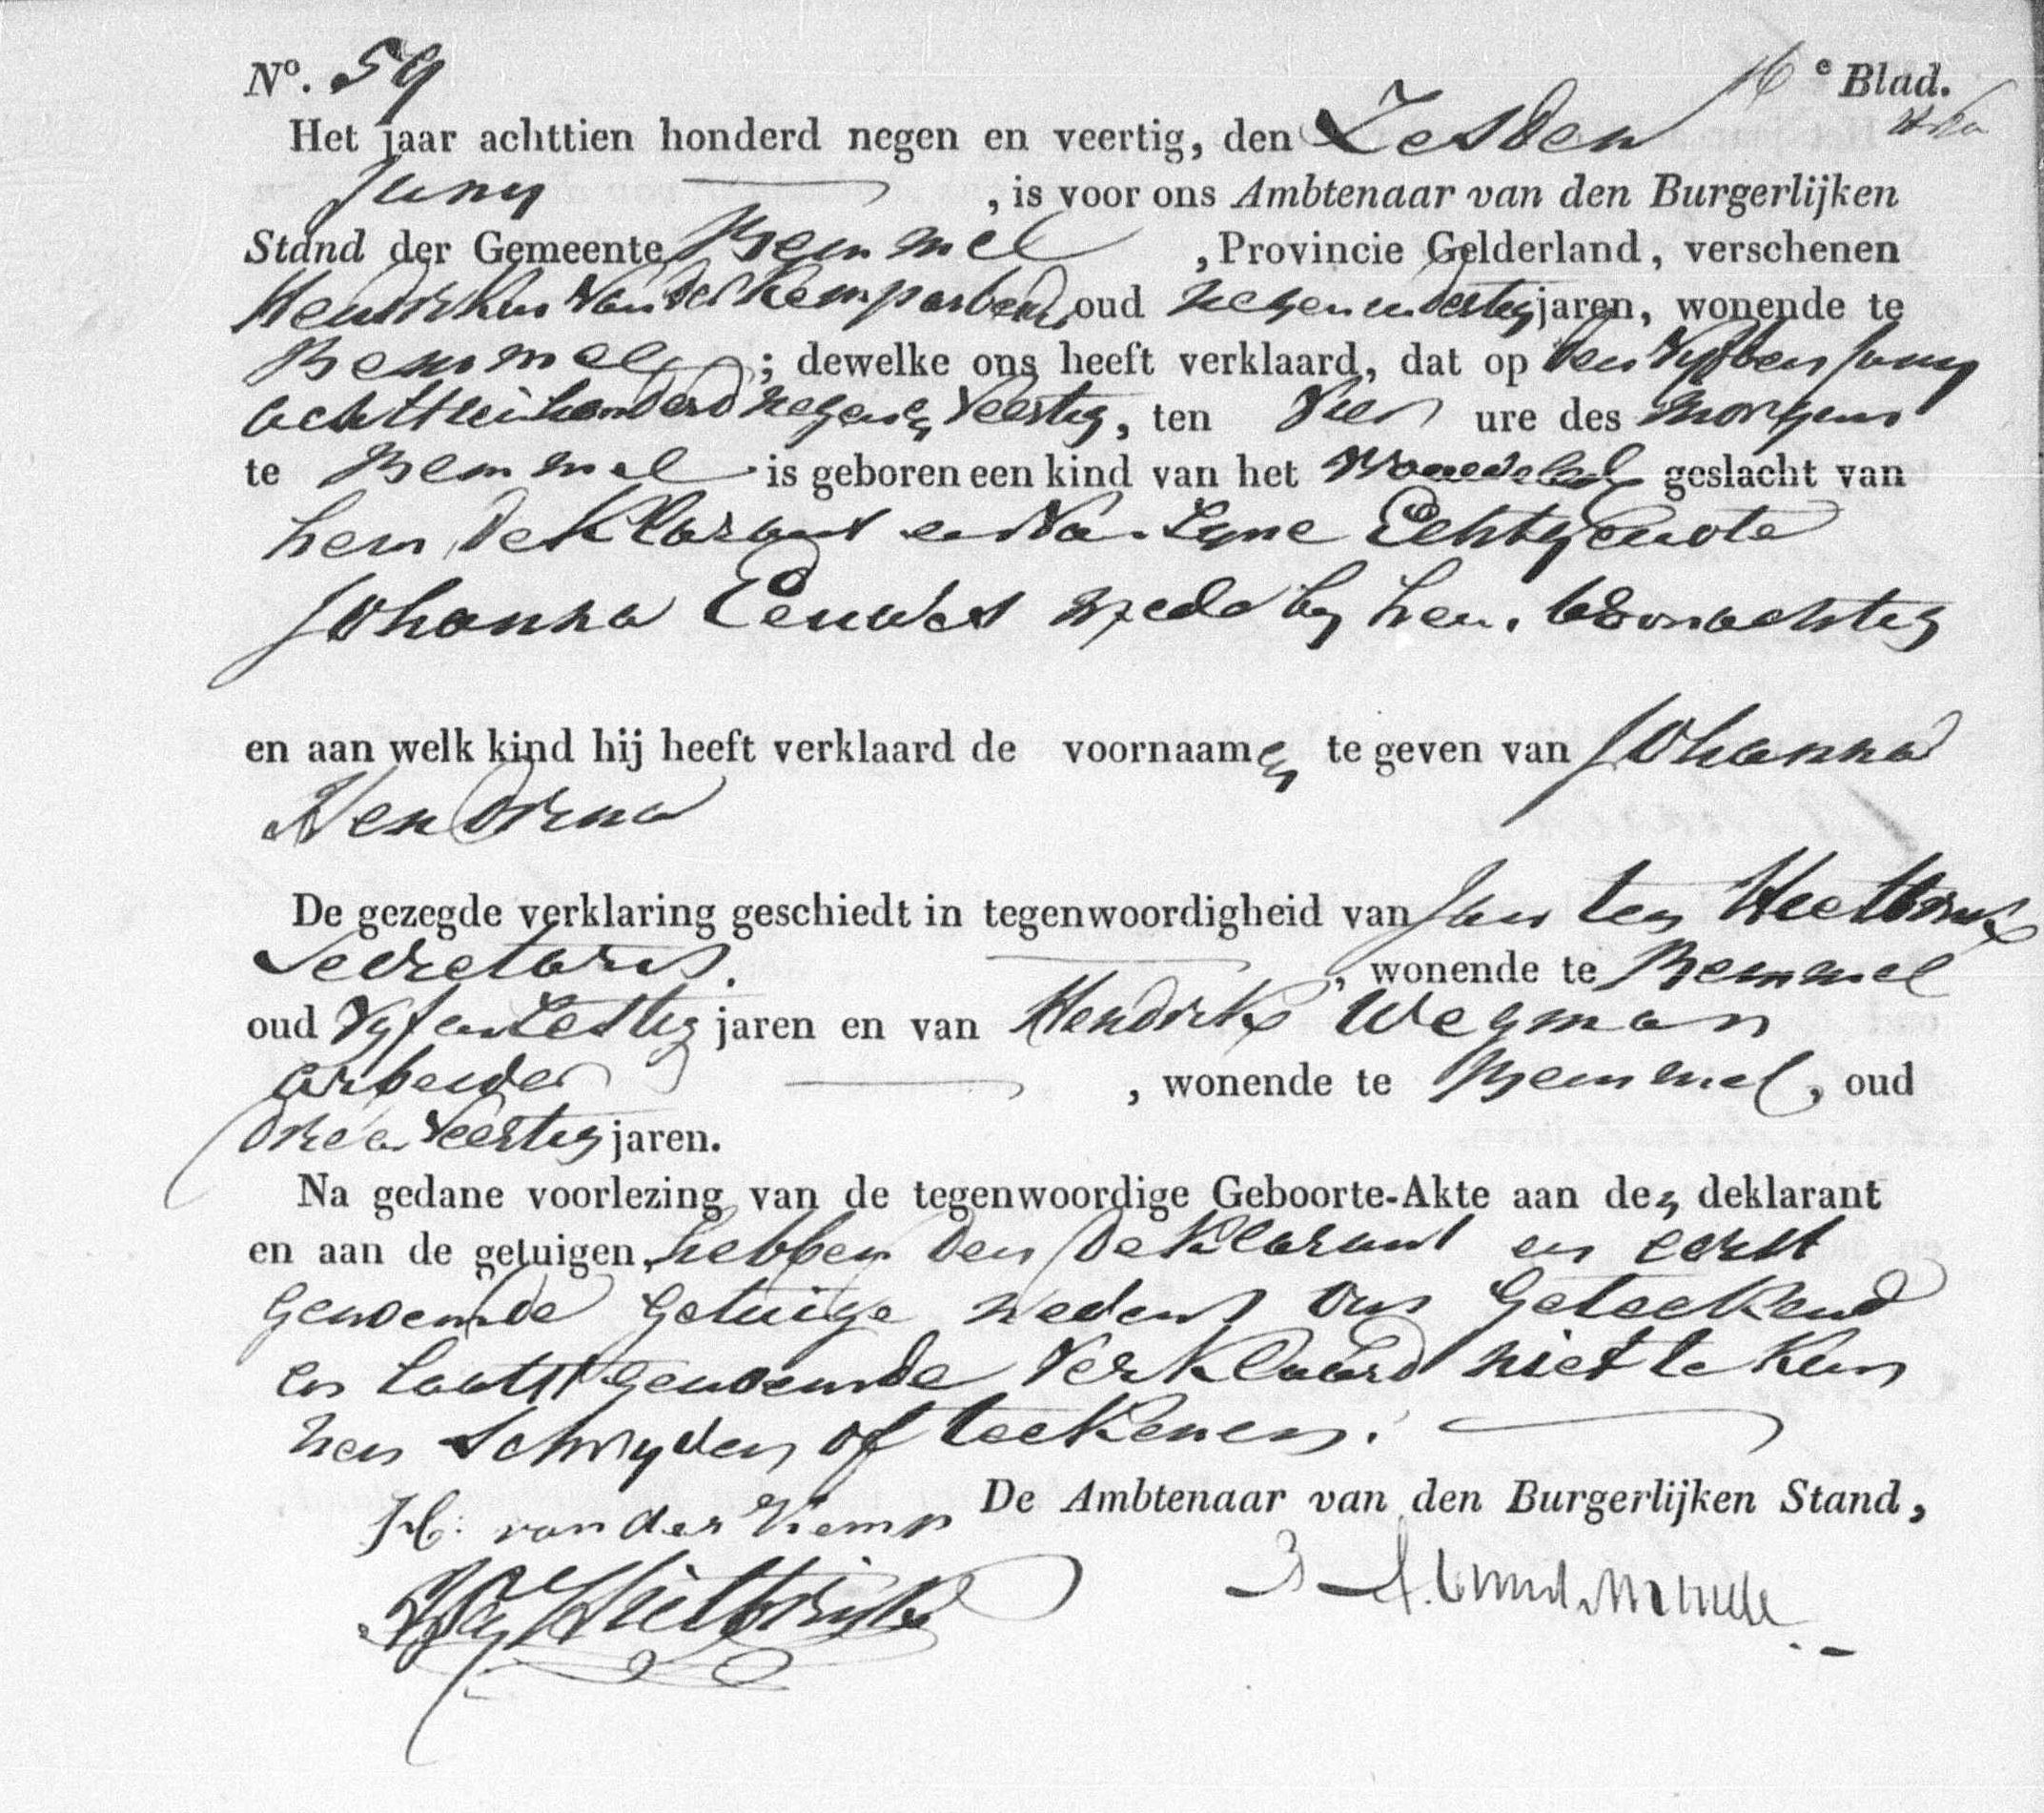 Nº. 59
16e Blad.
Het jaar achttien honderd negen en veertig, den Zesden
Juny , is voor ons Ambtenaar van den Burgerlijken
Stand der Gemeente Bemmel , Provincie Gelderland, verschenen
Hendrikus van der Kemp arbeider oud negen en dertig jaren, wonende te
Bemmel ; dewelke ons heeft verklaard, dat op den Vyfden Juny
achttienhonderd negen en Veertig, ten Vier ure des morgens
te Bemmel is geboren een kind van het Vrouwelyk geslacht van
hem deklarant en van Zyne Echtgenote
Johanna Eeuwes mede by hem woonachtig
en aan welk kind hij heeft verklaard de voornaamen te geven van Johanna
Hendrina
De gezegde verklaring geschiedt in tegenwoordigheid van Jan ten
Secretaris. , wonende te Bemmel
oud Vyf en Zestig jaren en van Hendrik Wegman
arbeider , wonende te Bemmel, oud
drie en Veertig jaren.
Na gedane voorlezing van de tegenwoordige Geboorte-Akte aan den deklarant
en aan de getuigen, hebben den deklarant en eerst
genoemde getuige nevens ons geteekend
en laatstgenoemde Verklaard niet te kun
nen Schryven of teekenen.
H. van der Kemp
De Ambtenaar van den Burgerlijken Stand,